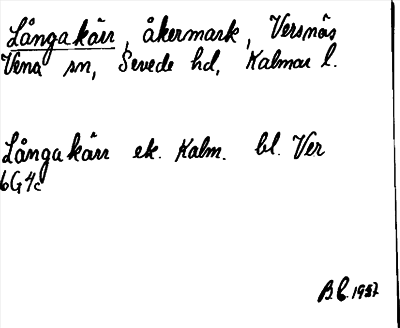 Långakärr, åkermark, Versnäs
Vena sn, Sevede hd, Kalmar l.
Långakärr ek. Kalm. bl. Ver
6G4c
B.C. 1937